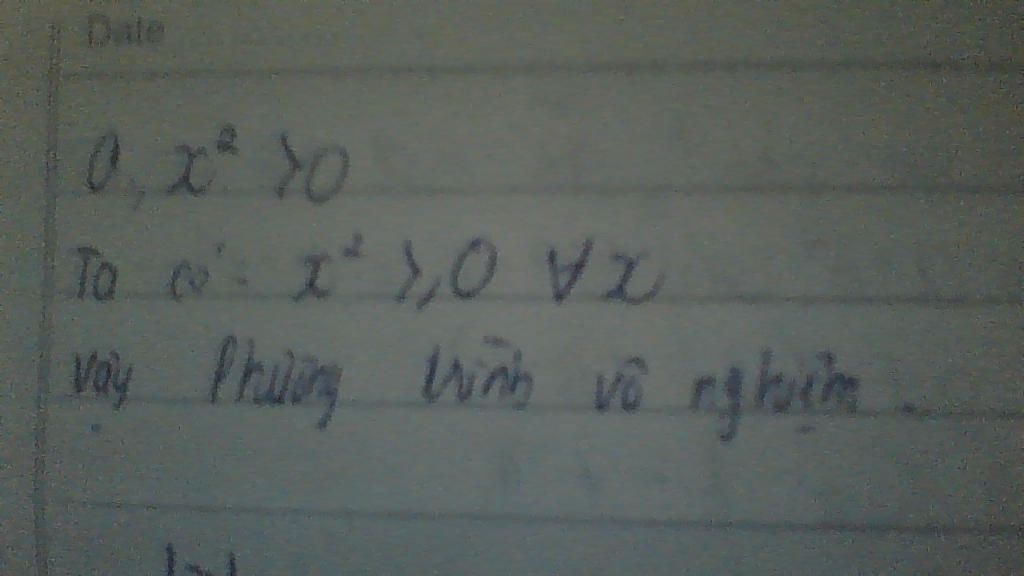 Date
a, x² > 0
Ta có: x² ≥ 0 ∀x
vậy Phương trình vô nghiệm.